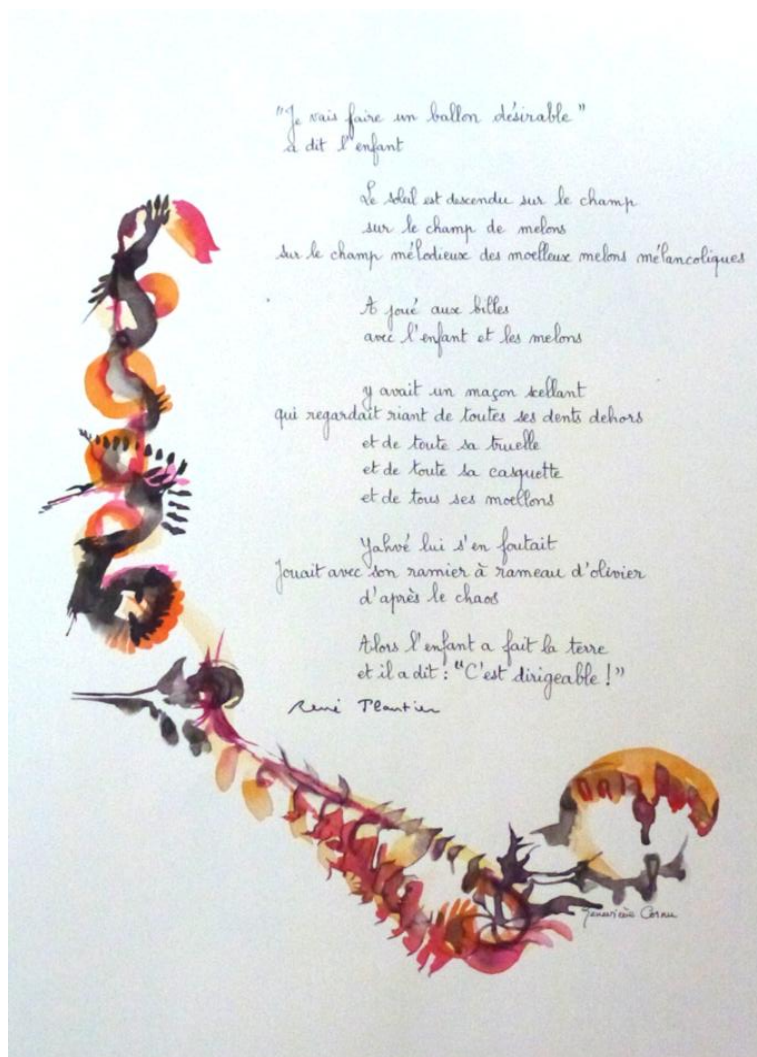 "Je vais faire un ballon désirable"
a dit l'enfant
Le soleil est descendu sur le champ
sur le champ de melons
sur le champ mélodieux des moelleux melons mélancoliques
A joué aux billes
avec l'enfant et les melons
y avait un maçon scellant
qui regardait riant de toutes ses dents dehors
et de toute sa truelle
et de toute sa casquette
et de tous ses moellons
Yahvé lui s'en foutait
Jouait avec son ramier à rameau d'olivier
d'après le chaos
Alors l'enfant a fait la terre
et il a dit : "C'est dirigeable !"
René Plantier
Geneviève Cornu